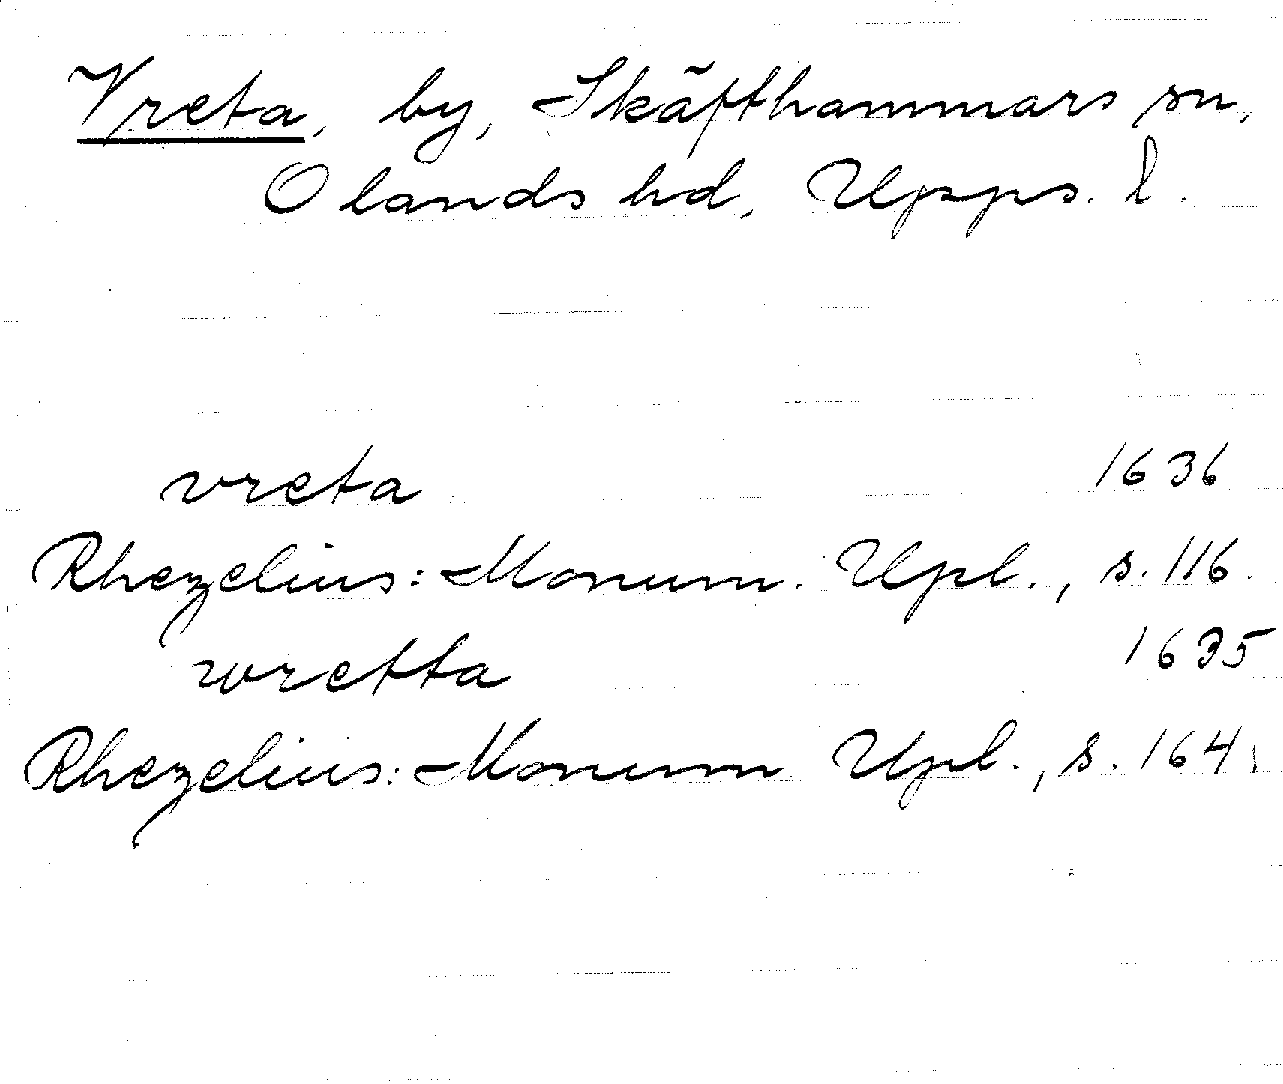 Vreta, by, Skäfthammars sn,
Olands hd, Upps. l.
vreta 1636
Rhezelius: Monum. Upl., s. 116
wretta 1635
Rhezelius: Monum Upl., s. 164